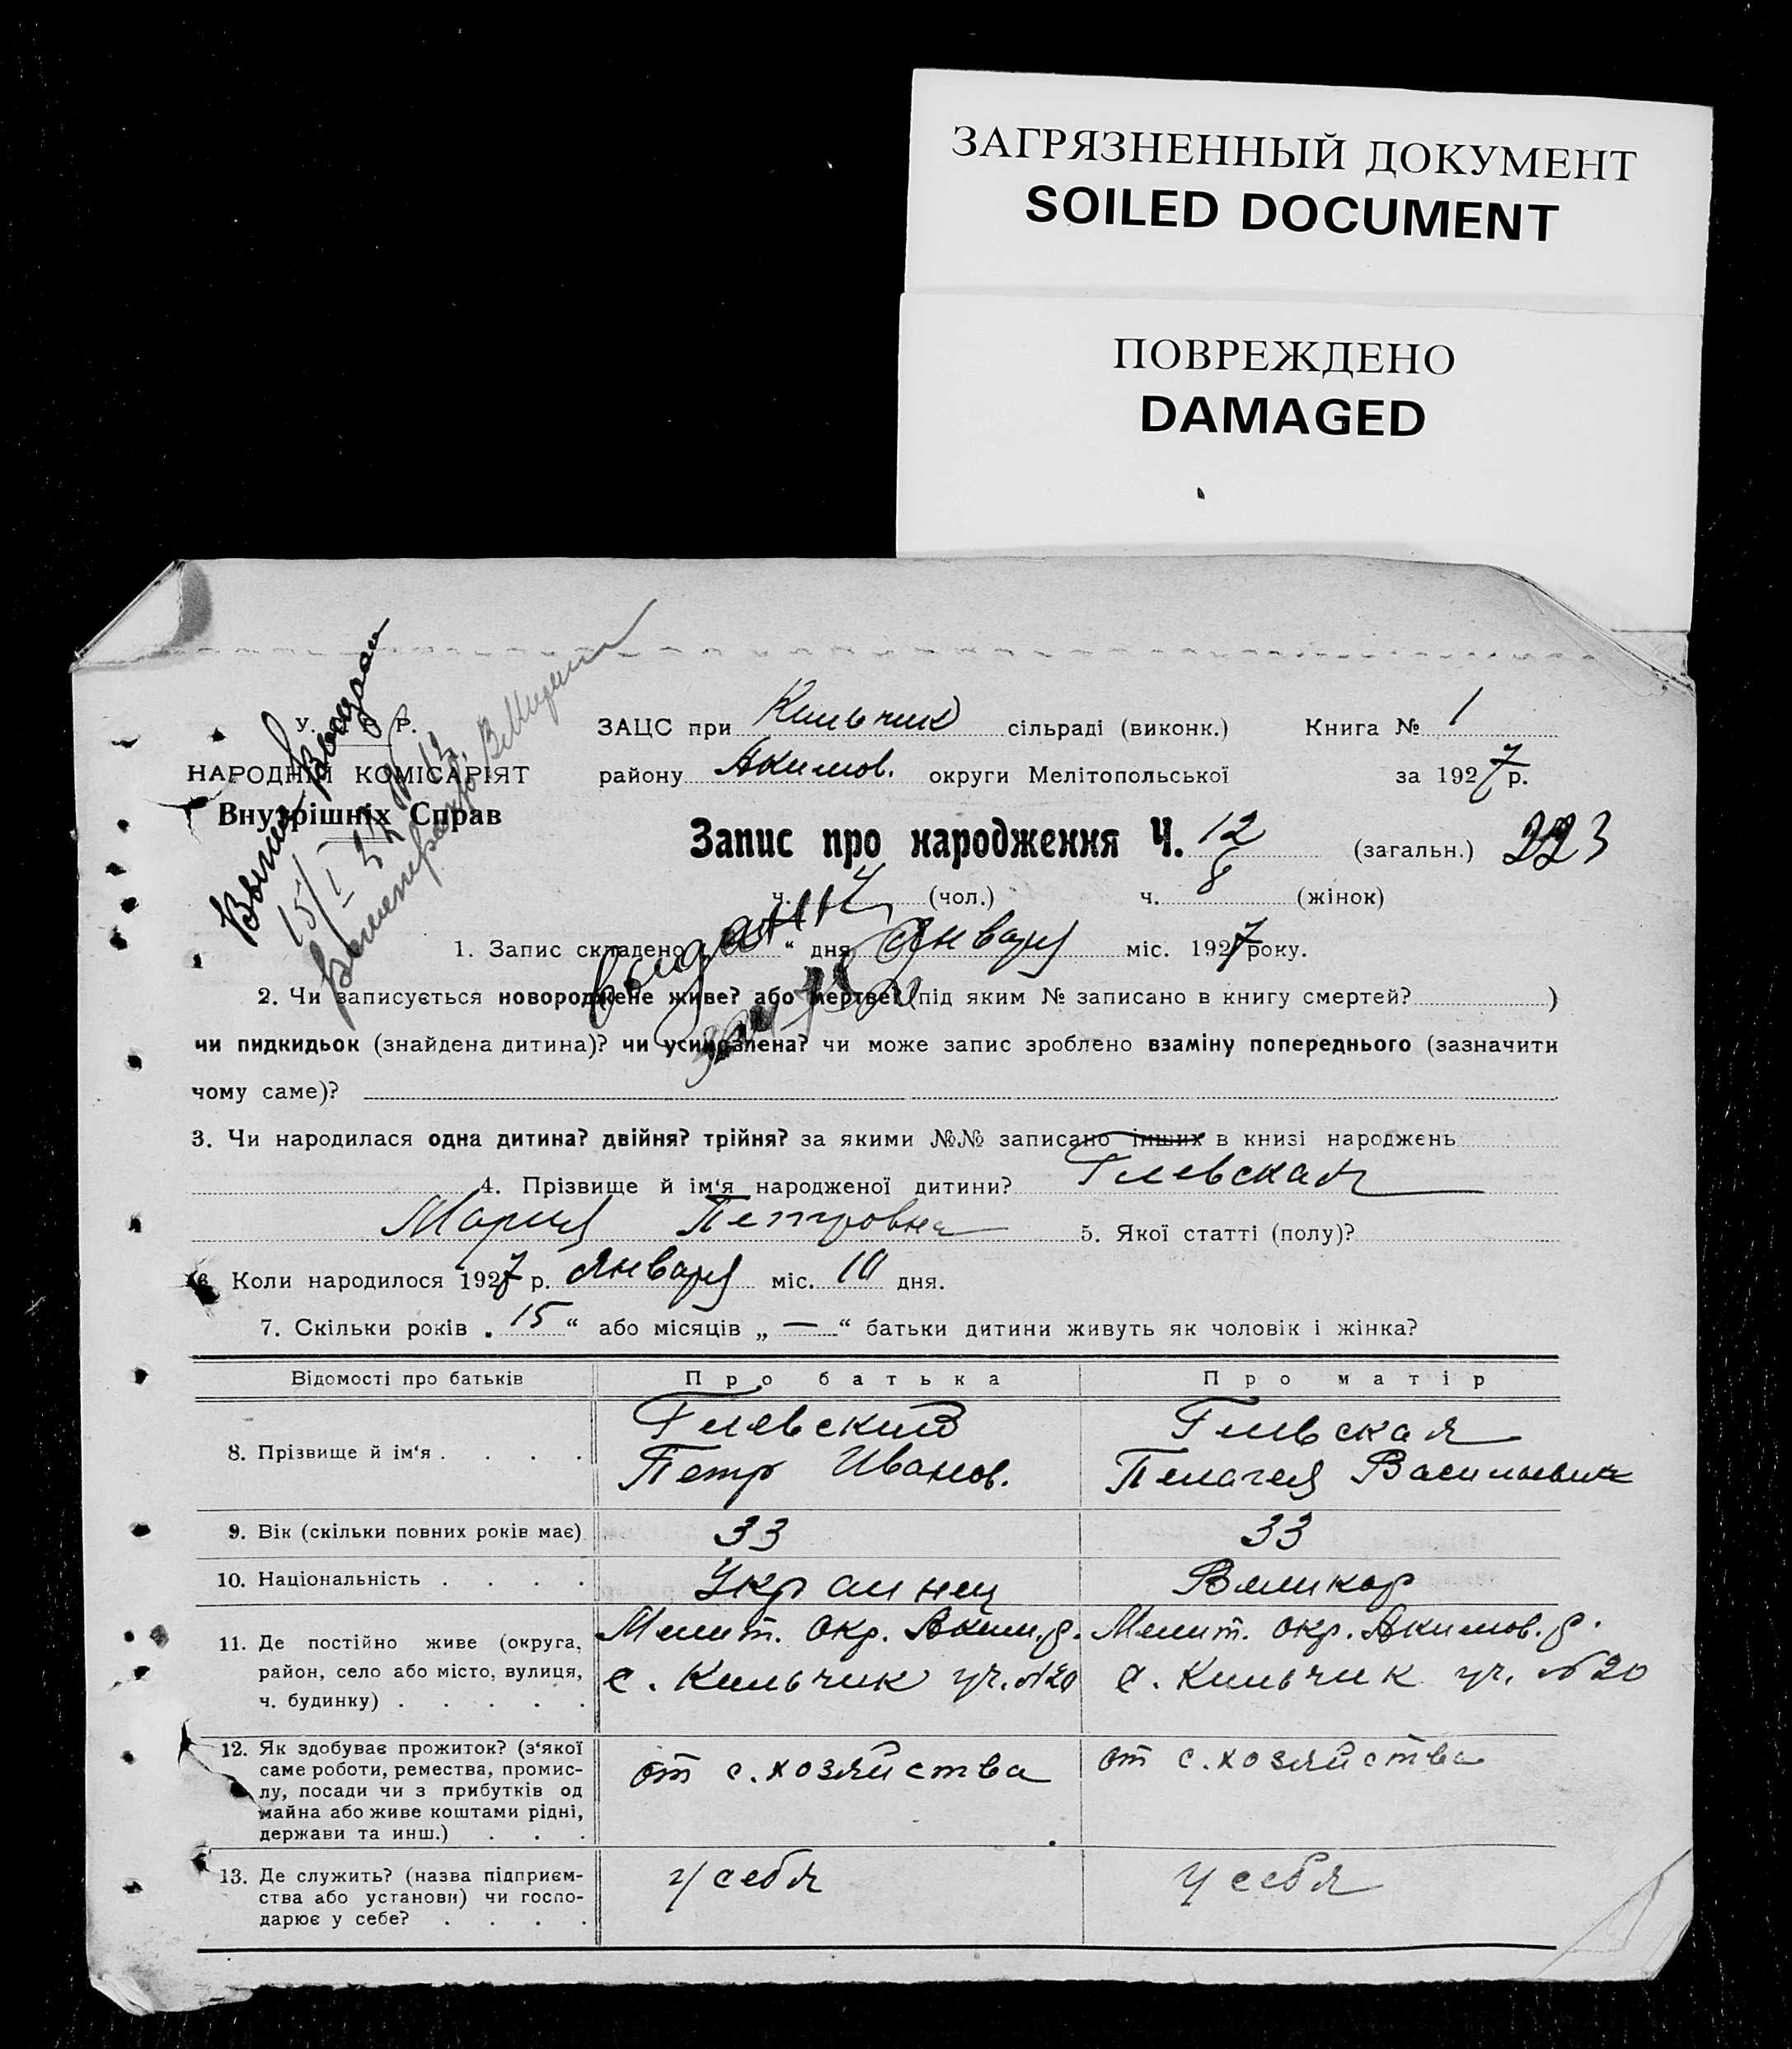 ЗАГРЯЗНЕННЫЙ ДОКУМЕНТ
SOILED DOCUMENT
ПОВРЕЖДЕНО
DAMAGED
У. Р.
НАРОДНІЙ КОМІСАРІЯТ
Внузрішніх Справ
15/I
ЗАЦС при Кильчик сільраді (виконк.) Книга № 1
району Акимов. округи Мелітопольської за 1927 р.
Запис про народження Ч. 12 (загальн.) 223
ч. 4 (чол.) ч. 8 (жінок)
1. Запис складено “ дня Января міс. 1927 року.
2. Чи записується новороджене живе? або мертве? (під яким № записано в книгу смертей? )
чи пидкидьок (знайдена дитина)? чи усиновлена? чи може запис зроблено взаміну попереднього (зазначити
чому саме)?
3. Чи народилася одна дитина? двійня? трійня? за якими №№ записано інших в книзі народжень
4. Прізвище й ім‘я народженої дитини? Гиевская
Мария Петровна 5. Якої статті (полу)?
6. Коли народилося 1927 р. Января міс. 10 дня.
7. Скільки років „ 15 “ або місяців „ — “ батьки дитини живуть як чоловік і жінка?
Відомості про батьків Про батька Про матір
8. Прізвище й ім‘я . . . . . Гиевский Гиевская
Петр Иванов. Пелагея Васильевна
9. Вік (скільки повних років має) 33 33
10. Національність . . . . Украинец Великор
11. Де постійно живе (округа, район, село або місто, вулиця, ч. будинку) . . . . . Мелит. окр. Аким. р. Мелит. окр. Акимов. р.
с. Кильчик уч. №20 с. Кильчик уч. №20
12. Як здобуває прожиток? (з‘якої
саме роботи, ремества, промис-
лу, посади чи з прибутків од
майна або живе коштами рідні,
держави та инш.) . . . от с. хозяйства от с. хозяйства
13. Де служить? (назва підприєм-
ства або установи) чи госпо-
дарює у себе? . . . . у себя у себя